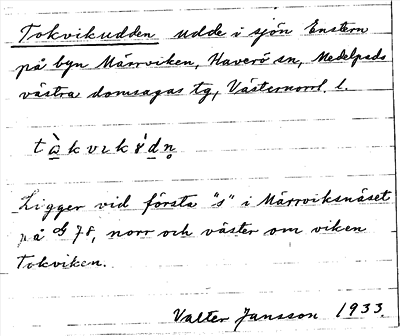 Tokvikudden udde i sjön Enstern
på byn Märrviken, Haverö sn, Medelpads
västra domsagas tg, Västernorrl. l.
Ligger vid första "s" i Märrviksnäset
på 78, norr och väster om viken
Tokviken.
Valter Jansson 1933.